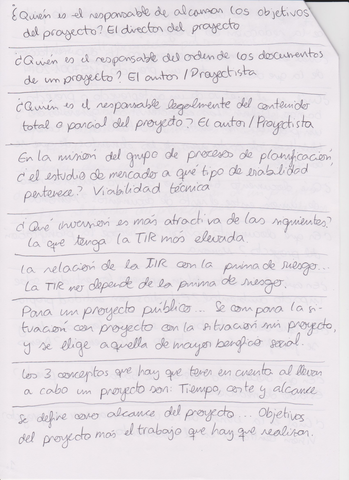 ¿Quién es el responsable de alcanzar los objetivos
del proyecto? El director del proyecto
¿Quién es el responsable del orden de los documentos
de un proyecto? El autor / Proyectista
¿Quién es el responsable legalmente del contenido
total o parcial del proyecto? El autor / Proyectista
En la misión del grupo de procesos de planificación,
¿el estudio de mercado a qué tipo de viabilidad
pertenece? Viabilidad técnica
¿Qué inversión es más atractiva de las siguientes?
La que tenga la TIR más elevada
La relación de la TIR con la prima de riesgo...
La TIR no depende de la prima de riesgo.
Para un proyecto público... Se compara la si-
tuación con proyecto con la situación sin proyecto,
y se elige aquella de mayor beneficio social.
Los 3 conceptos que hay que tener en cuenta al llevar
a cabo un proyecto son: Tiempo, coste y alcance
Se define como alcance del proyecto... Objetivos
del proyecto más el trabajo que hay que realizar.